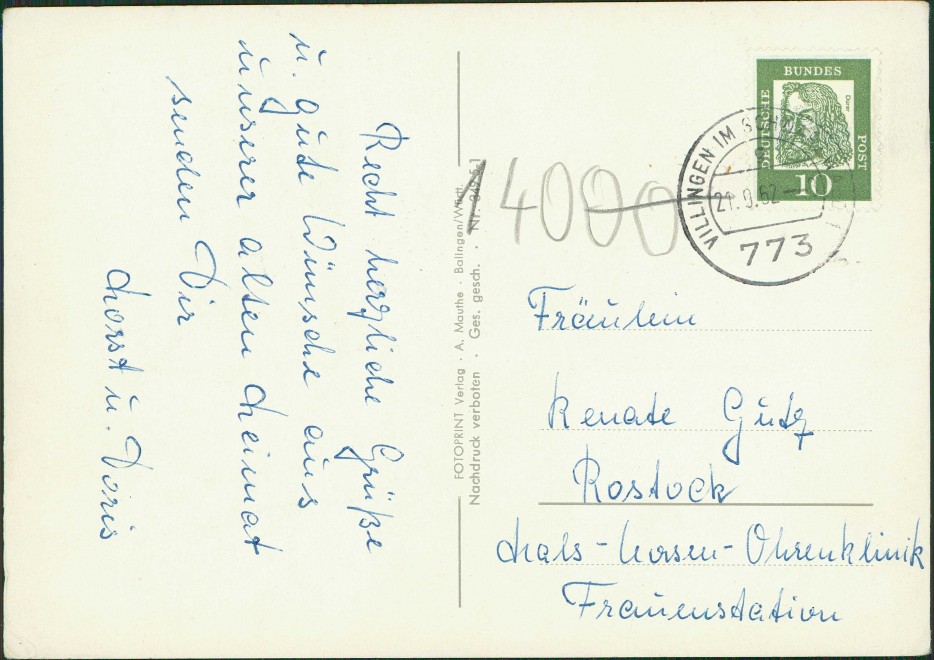 Recht herzliche Grüße
u. gute Wünsche aus
unserer alten Heimat
senden Dir
Horst u. Doris
FOTOPRINT Verlag · A. Mauthe · Balingen/Württ.
Nachdruck verboten · Ges. gesch. ·
DEUTSCHE
BUNDES
POST
Dürer
10
VILLINGEN IM
773
Fräulein
Renate Gütz
Rostock
Hals-Nasen-Ohrenklinik
Frauenstation